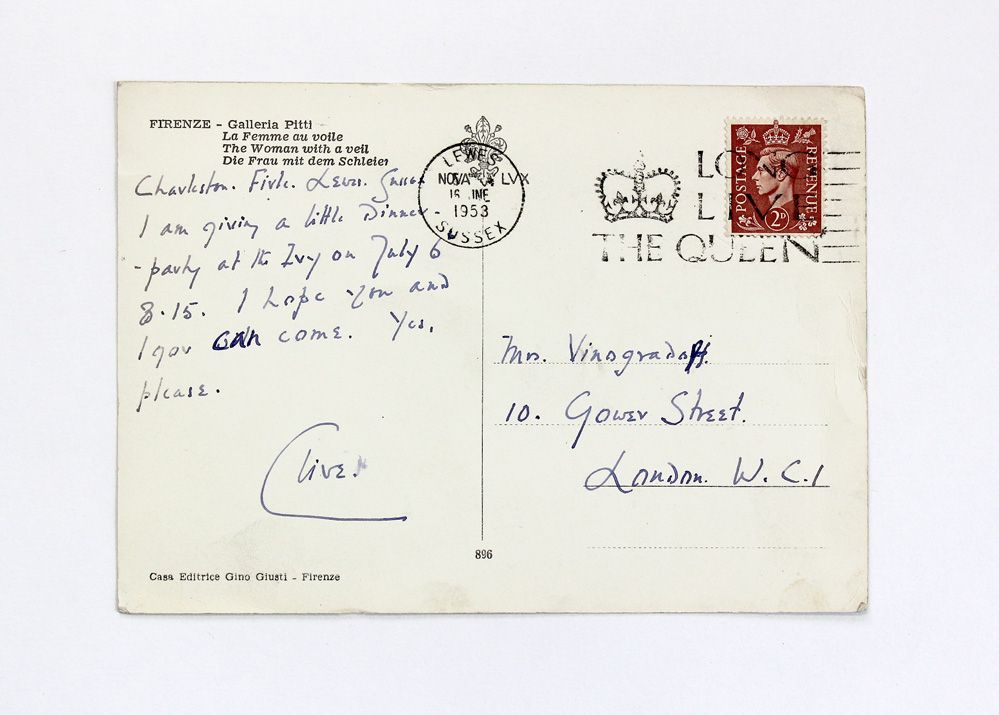 FIRENZE - Galleria Pitti
La Femme au voile
The Woman with a veil
Die Frau mit dem Schleier
Charleston. Firle. Lewes. Sussex
I am giving a little Dinner
-party at the Ivy on July 6
8.15. I hope you and
Igor can come. Yes,
please.
Clive.
Casa Editrice Gino Giusti - Firenze
896
LEWES
16 JNE
1953
SUSSEX
LONG
LIVE
THE QUEEN
POSTAGE
REVENUE
2D
Mrs. Vinogradoff.
10. Gower Street.
London. W.C.1